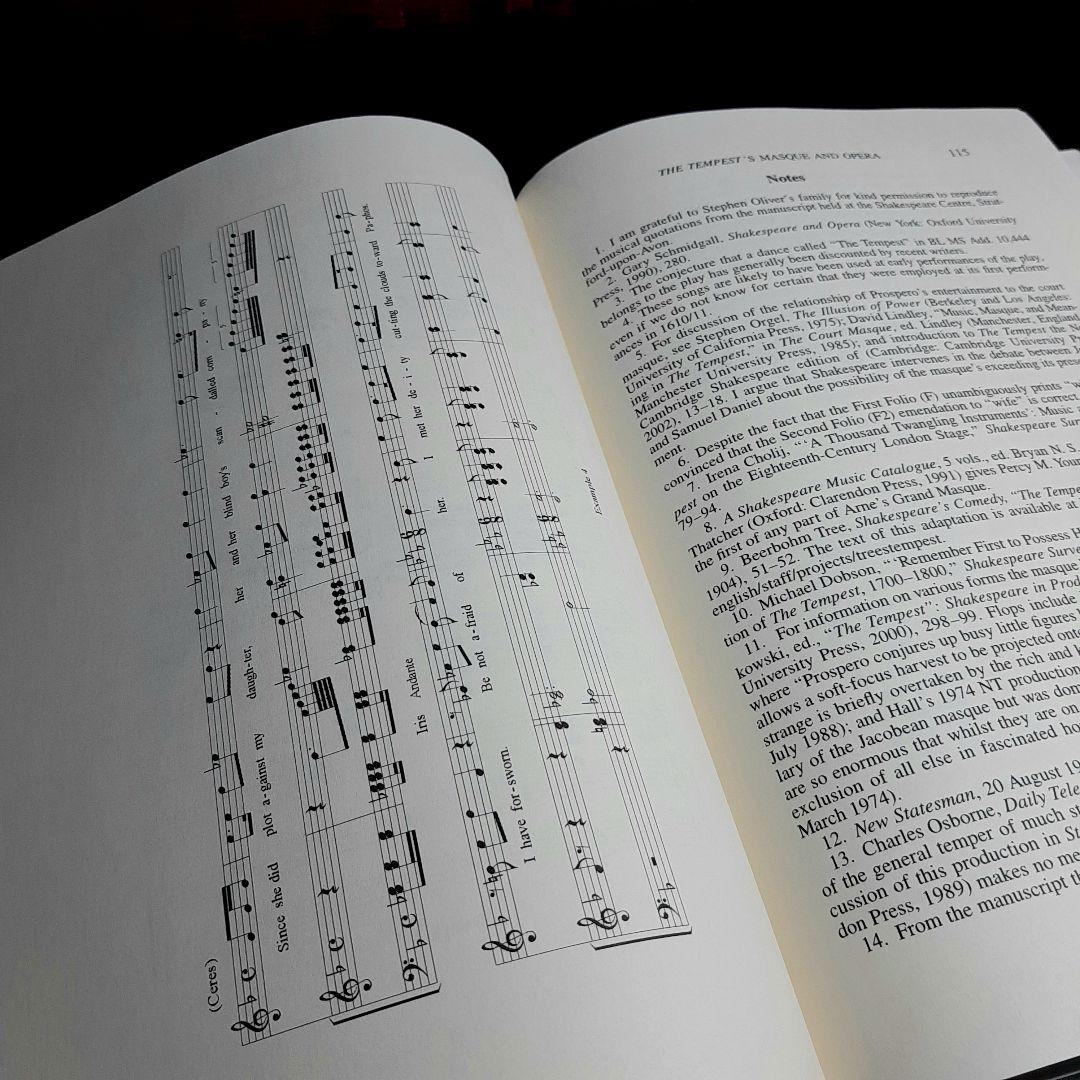 (Ceres)
Since she did plot a-gainst my daugh-ter, her and her blind boy's scan - dalled com - pa - ny
Iris Andante
I have for-sworn. Be not a-fraid of her. I met her de-i-ty cut-ting the clouds to-ward Pa-phos.
Example
THE TEMPEST'S MASQUE AND OPERA 115
Notes
1. I am grateful to Stephen Oliver's family for kind permission to reproduce
the musical quotations from the manuscript held at the Shakespeare Centre, Strat-
ford-upon-Avon.
2. Gary Schmidgall, Shakespeare and Opera (New York: Oxford University
Press, 1990), 280.
3. The conjecture that a dance called "The Tempest" in BL MS Add. 10,444
belongs to the play has generally been discounted by recent writers.
4. These songs are likely to have been used at early performances of the play,
even if we do not know for certain that they were employed at its first perform-
ances in 1610/11.
5. For discussion of the relationship of Prospero's entertainment to the court
masque, see Stephen Orgel, The Illusion of Power (Berkeley and Los Angeles:
University of California Press, 1975); David Lindley, "Music, Masque, and Mean-
ing in The Tempest," in The Court Masque, ed. Lindley (Manchester, England
Manchester University Press, 1985); and introduction to The Tempest the
Cambridge Shakespeare edition of (Cambridge: Cambridge University
2002), 13–18. I argue that Shakespeare intervenes in the debate between
and Samuel Daniel about the possibility of the masque's exceeding its
ment.
6. Despite the fact that the First Folio (F) unambiguously prints
convinced that the Second Folio (F2) emendation to "wife" is correct
7. Irena Cholij, "'A Thousand Twangling Instruments': Music
pest on the Eighteenth-Century London Stage," Shakespeare
79–94.
8. A Shakespeare Music Catalogue, 5 vols., ed. Bryan N. S.
Thatcher (Oxford: Clarendon Press, 1991) gives Percy M.
the first of any part of Arne's Grand Masque.
9. Beerbohm Tree, Shakespeare's Comedy, "The
1904), 51–52. The text of this adaptation is available at
english/staff/projects/treestempest.
10. Michael Dobson, "'Remember First to Possess
tion of The Tempest, 1700–1800," Shakespeare
11. For information on various forms the masque
kowski, ed., "The Tempest": Shakespeare in
University Press, 2000), 298–99. Flops include
where "Prospero conjures up busy little figures
allows a soft-focus harvest to be projected
strange is briefly overtaken by the rich and
July 1988); and Hall's 1974 NT production
lary of the Jacobean masque but was
are so enormous that whilst they are on
exclusion of all else in fascinated
March 1974).
12. New Statesman, 20 August
13. Charles Osborne, Daily
of the general temper of much
cussion of this production in
don Press, 1989) makes no
14. From the manuscript